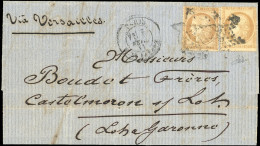 Via Versailles.
Monsieur
Boudet Frères,
Castelmoron s/ Lot
(Lot & Garonne)